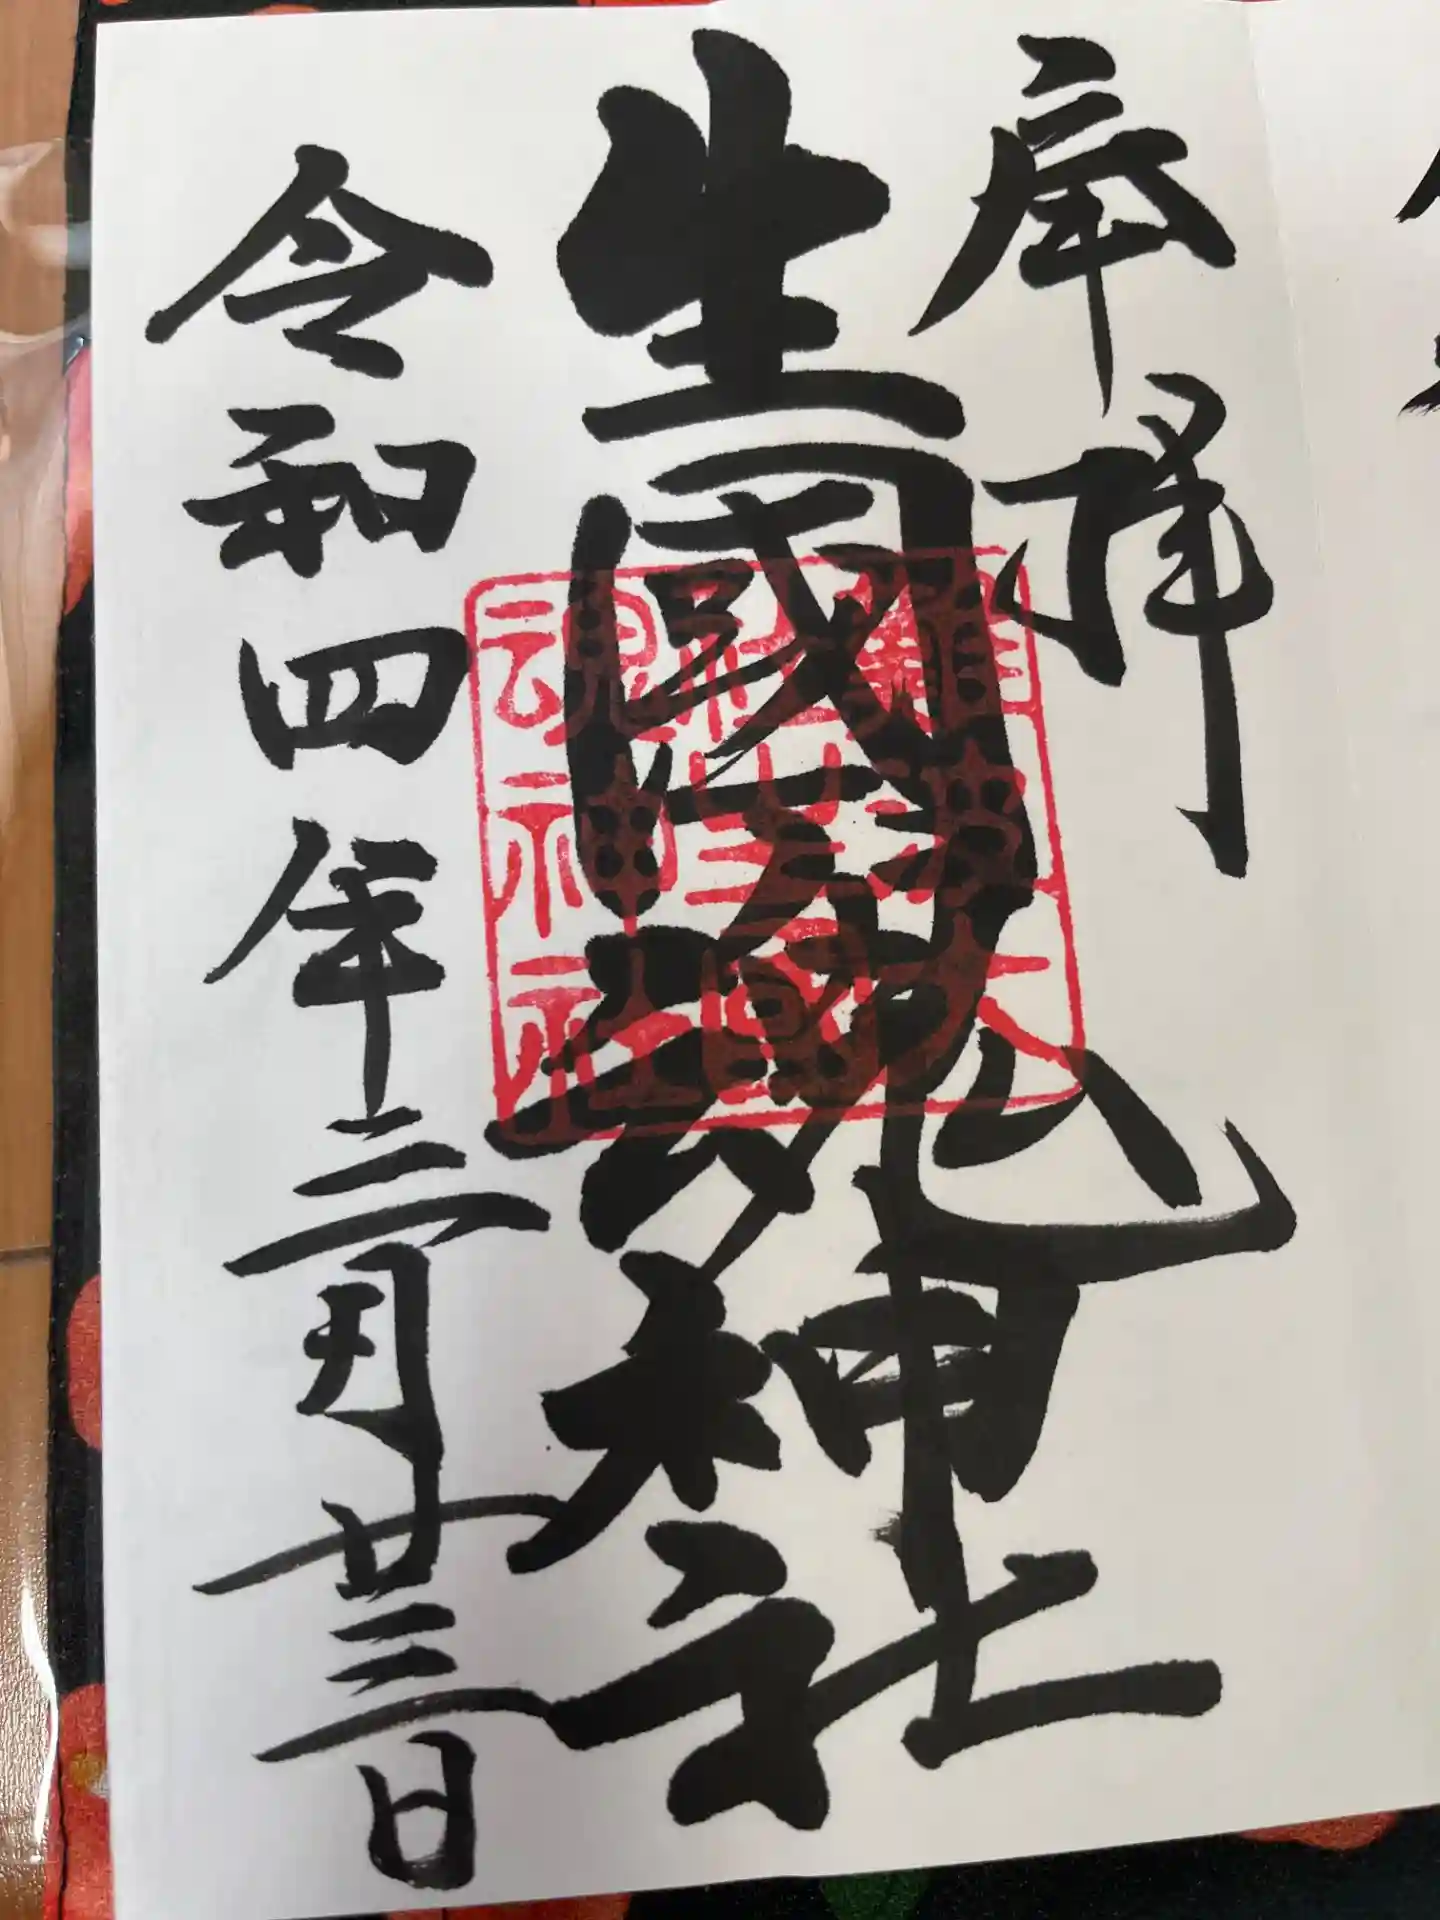 奉拝
生國魂神社
難波大
社生國
魂神社
令和四年三月廿三日